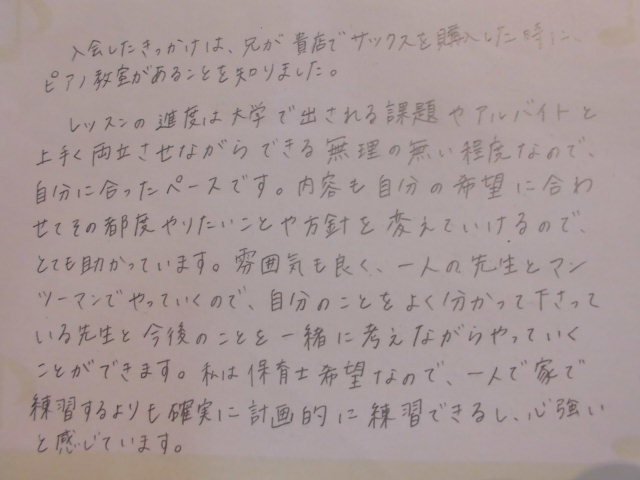 入会したきっかけは、兄が貴店でサックスを購入した時に、
ピアノ教室があることを知りました。
レッスンの進度は大学で出される課題やアルバイトと
上手く両立させながらできる無理の無い程度なので、
自分に合ったペースです。内容も自分の希望に合わ
せてその都度やりたいことや方針を変えていけるので、
とても助かっています。雰囲気も良く、一人の先生とマン
ツーマンでやっていくので、自分のことをよく分かって下さって
いる先生と今後のことを一緒に考えながらやっていく
ことができます。私は保育士希望なので、一人で家で
練習するよりも確実に計画的に練習できるし、心強い
と感じています。